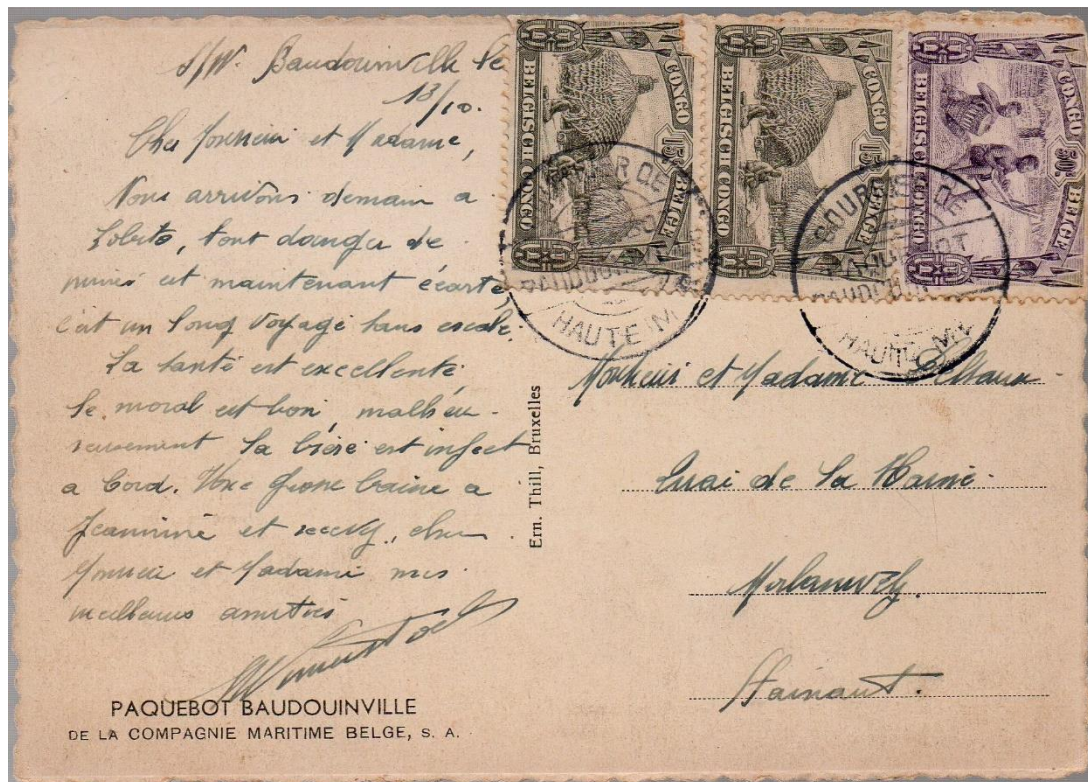 S/W Baudouinville le
13/10.
Cher Monsieur et Madame,
Nous arrivons demain a
Lobito, tout danger de
mines est maintenant écarté
c'est un long voyage sans escale.
La santé est excellente
le moral est bon malheu-
reusement la bière est infect
a bord. Une grosse baise a
Jeannine et recevez, cher
Monsieur et Madame mes
meilleures amitiés
PAQUEBOT BAUDOUINVILLE
DE LA COMPAGNIE MARITIME BELGE, S. A.
Ern. Thill, Bruxelles
CONGO BELGE
15c
BELGISCH CONGO
CONGO BELGE
15c
BELGISCH CONGO
CONGO BELGE
50c
BELGISCH CONGO
PAQUEBOT
HAUTE M
COURRIER DE
PAQUEBOT
HAUTE MER
Monsieur et Madame
Quai de la Haine.
Morlanwelz.
Hainaut.